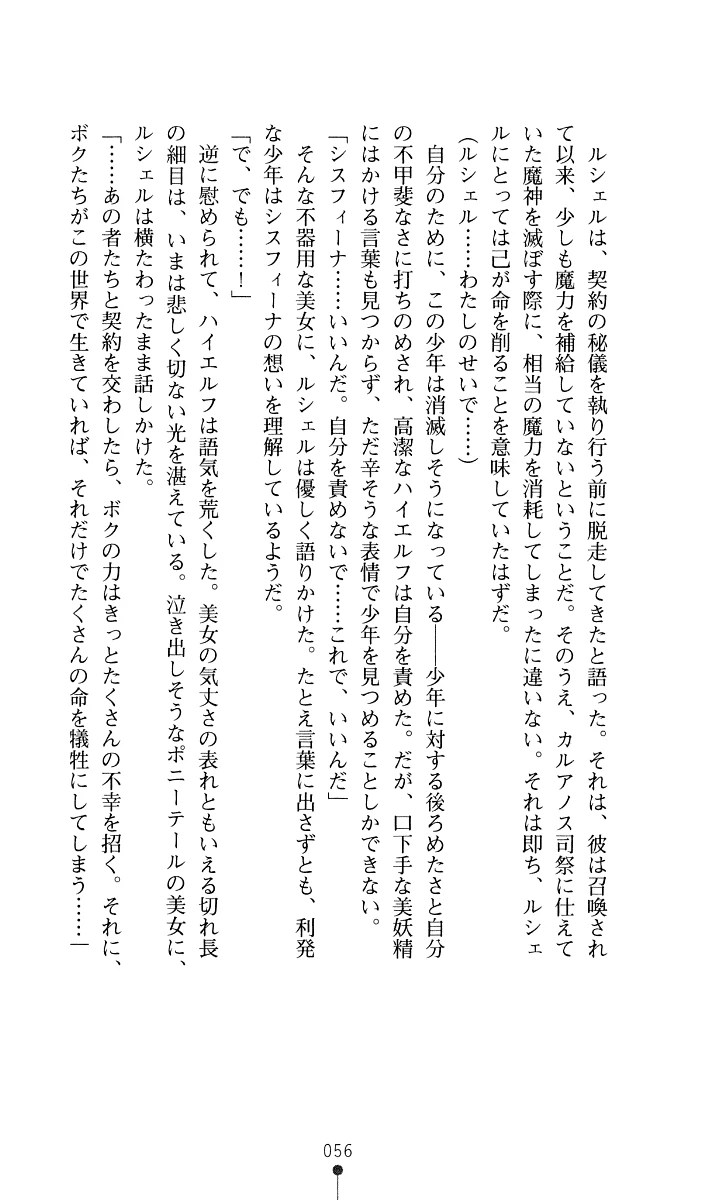 ルシェルは、契約の秘儀を執り行う前に脱走してきたと語った。それは、彼は召喚され
て以来、少しも魔力を補給していないということだ。そのうえ、カルアノス司祭に仕えて
いた魔神を滅ぼす際に、相当の魔力を消耗してしまったに違いない。それは即ち、ルシェ
ルにとっては己が命を削ることを意味していたはずだ。
（ルシェル……わたしのせいで……）
　自分のために、この少年は消滅しそうになっている――少年に対する後ろめたさと自分
の不甲斐なさに打ちのめされ、高潔なハイエルフは自分を責めた。だが、口下手な美妖精
にはかける言葉も見つからず、ただ辛そうな表情で少年を見つめることしかできない。
「シスフィーナ……いいんだ。自分を責めないで……これで、いいんだ」
　そんな不器用な美女に、ルシェルは優しく語りかけた。たとえ言葉に出さずとも、利発
な少年はシスフィーナの想いを理解しているようだ。
「で、でも……！」
　逆に慰められて、ハイエルフは語気を荒くした。美女の気丈さの表れともいえる切れ長
の細目は、いまは悲しく切ない光を湛えている。泣き出しそうなポニーテールの美女に、
ルシェルは横たわったまま話しかけた。
「……あの者たちと契約を交わしたら、ボクの力はきっとたくさんの不幸を招く。それに、
ボクたちがこの世界で生きていれば、それだけでたくさんの命を犠牲にしてしまう……」
056